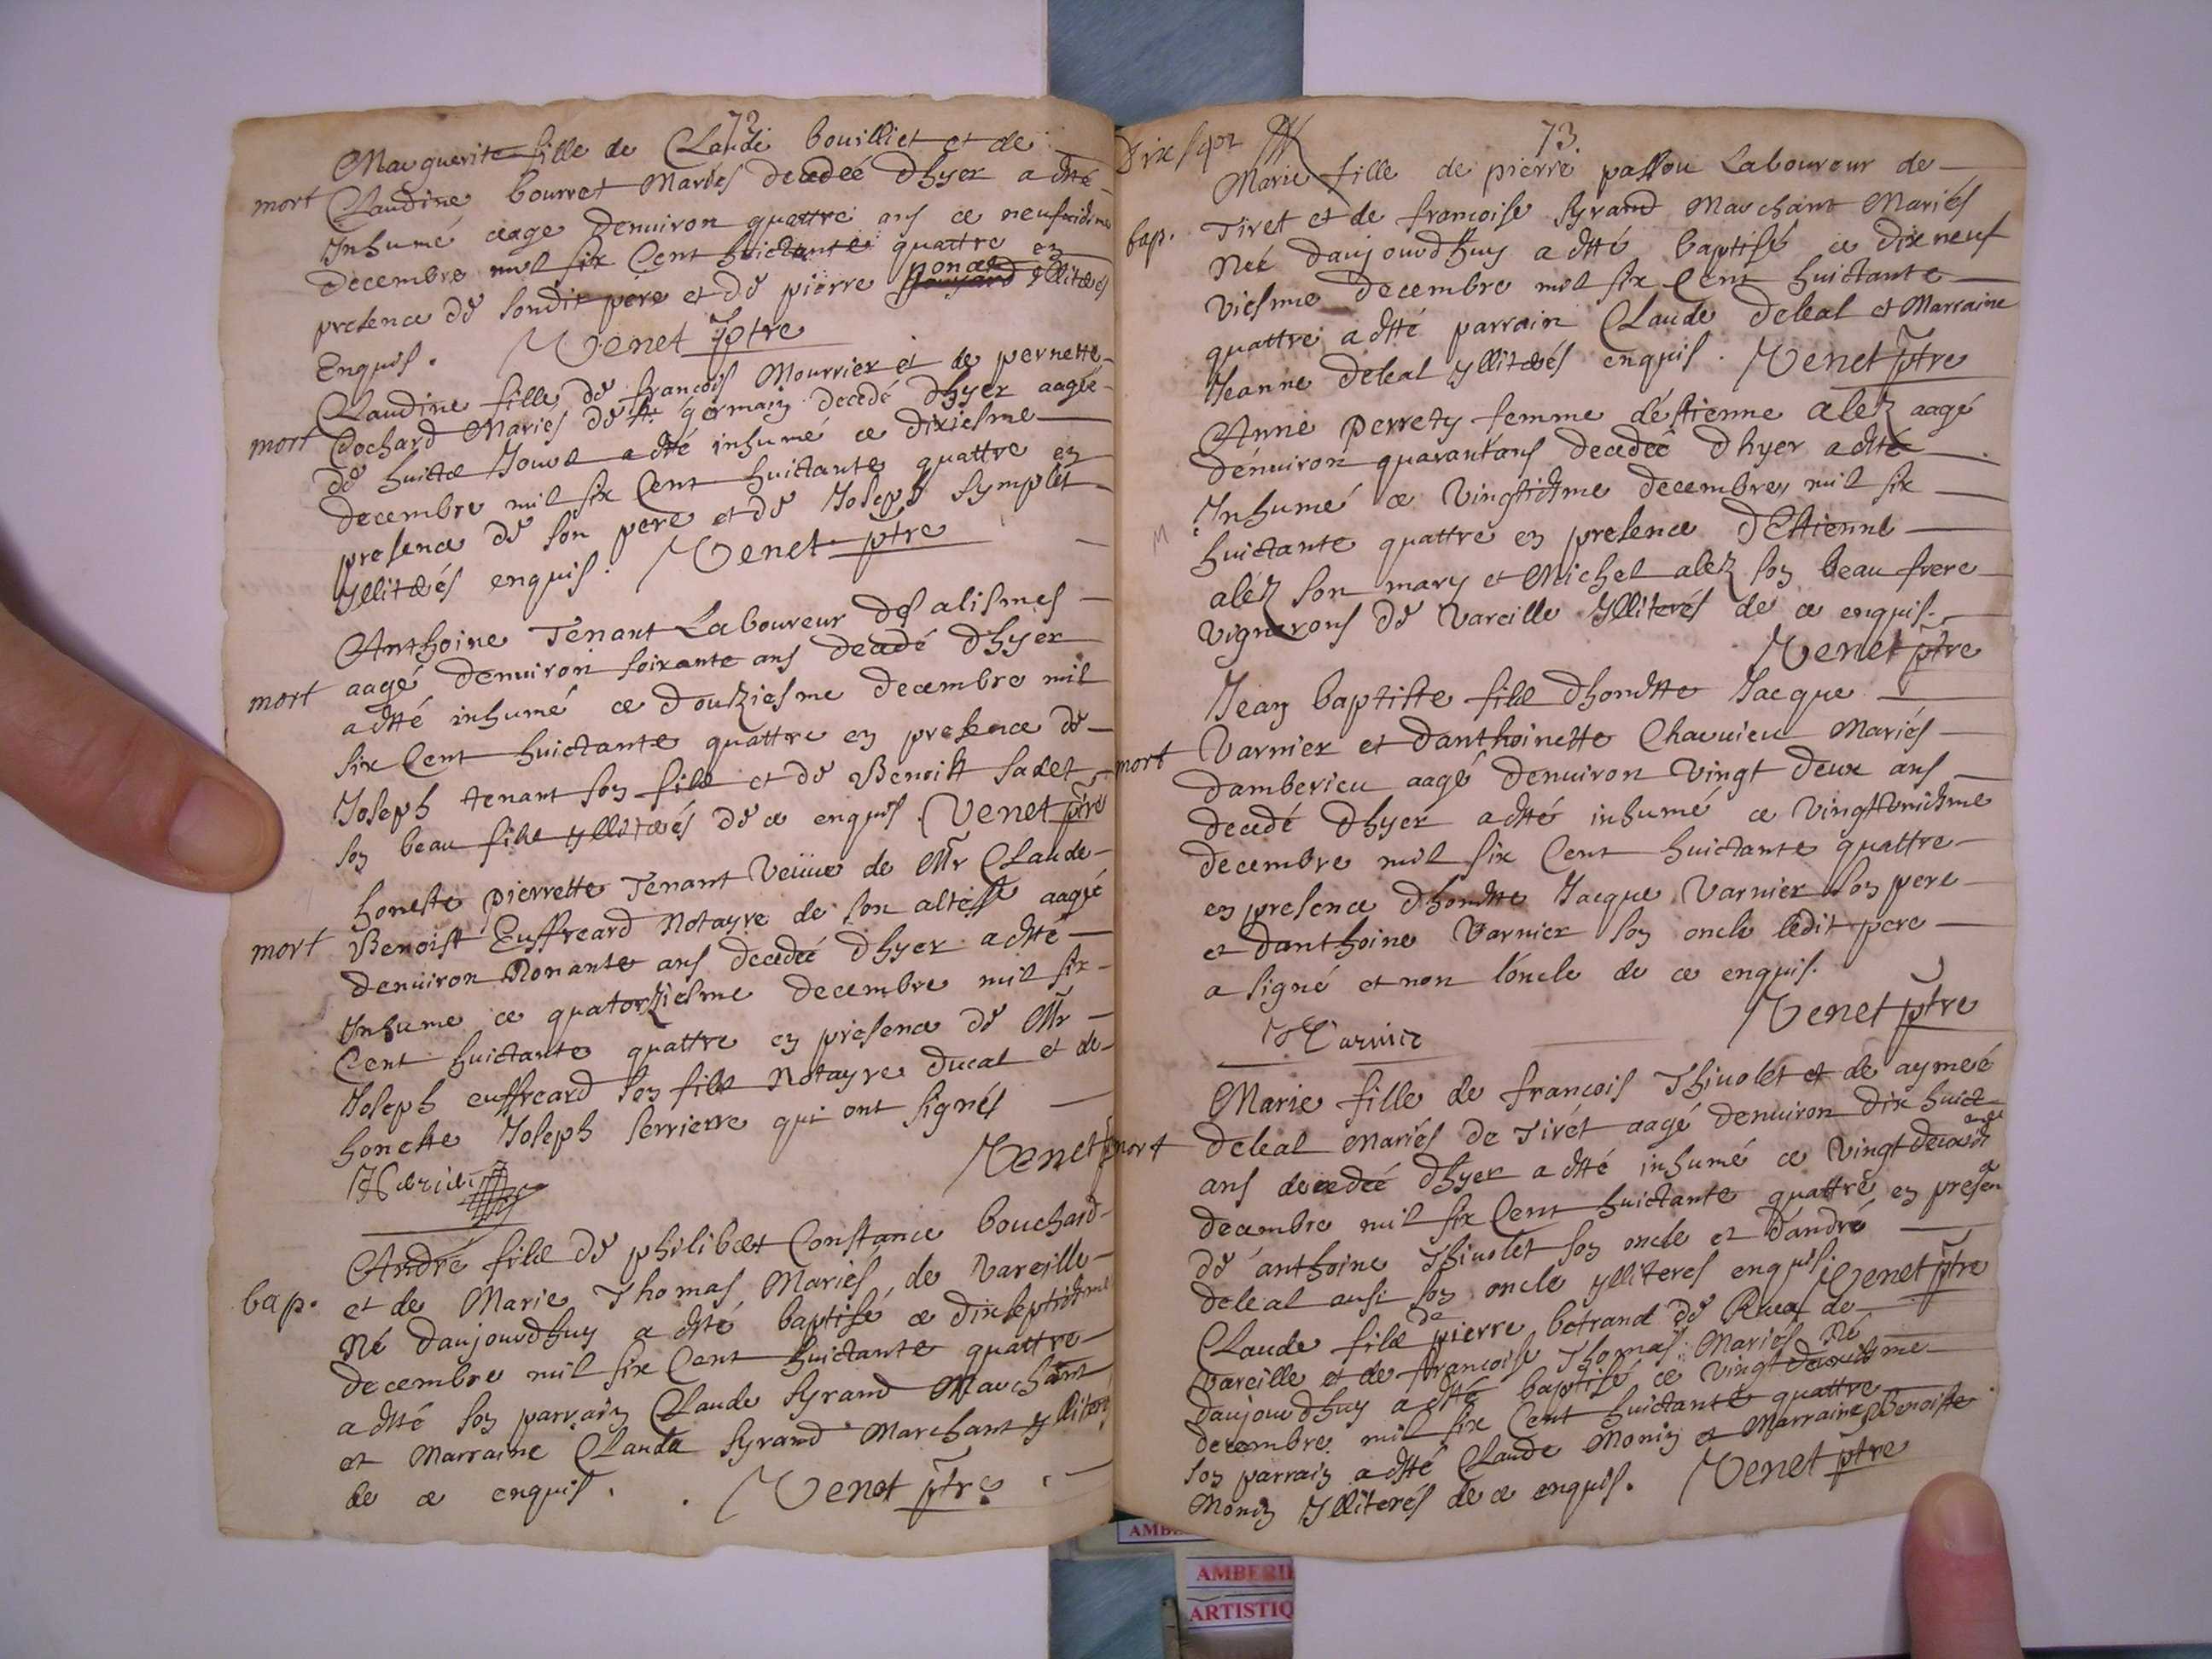 72
Marguerite fille de Claude bouilliet et de
mort Claudine bourret Mariés decedeé dhyer a etté
Inhumé aage denuiron quattre ans ce neufuiesme
decembre mil six Cent huictante quattre en
presence de sondit pere et de pierre ponces yllitérés
Enquis. Venet ptre
Claudine fille de francois Mourrier et de pernette
mort Cochard Mariés de St germain decedé dhyer aageé
de huict Jours a etté inhumé ce dixiesme
decembre mil six Cent huictante quattre en
presence de son pere et de Joseph symplet
yllitérés enquis. Venet ptre
Anthoine Tenant Laboureur des alismes
mort aagé denuiron soixante ans decedé dhyer
a etté inhumé ce douziesme decembre mil
six Cent huictante quattre en presence de
Joseph tenant son filz et de Benoist sadet
son beau filz yllitérés de ce enquis. Venet ptre
honeste pierrette Tenant Veuue de Mr Claude
mort Benoist Euffreard Notayre de son altesse aageé
denuiron Nonante ans decedeé dhyer a etté
Inhume ce quatorziesme decembre mil six
Cent huictante quattre en presence de Mr
Joseph euffreard son filz Notayre ducal et de
honeste Joseph serrierre qui ont signés
Venet p
André filz de philibert Constance bouchard
bap. et de Marie Thomas Mariés de Vareille
Né daujourdhuy a etté baptisé ce dixseptiesme
decembre mil six Cent huictante quattre
a etté son parrain Claude syrand Marchant
et Marraine Clauda syrand Marchant yllitérés
de ce enquis. Venet ptre
Dix sept 73.
Marie fille de pierre passou Laboureur de
bap. Tiret et de francoise syrand Marchant Mariés
Neé daujourdhuy a etté baptisé ce dixneuf
viesme decembre mil six Cent huictante
quattre a etté parrain Claude deleal et Marraine
Jeanne deleal yllitérés enquis. Venet ptre
Anne perrety femme déstienne alez aagé
dénuiron quarantans decedeé dhyer a etté
Inhumé ce Vingtiesme decembre mil six
M huictante quattre en presence dEstienne
aléz son mary et Michel aléz son beau frere
vignerons de Vareille Yllitérés de ce enquis.
Venet ptre
Jean baptiste filz dhoneste Jacque
mort Varnier et danthoinette Chauuieu Mariés
damberieu aagé denuiron Vingt deux ans
decedé dhyer a etté inhumé ce Vingtvniesme
decembre mil six Cent huictante quattre
en presence dhoneste Jacque Varnier son pere
et danthoine Varnier son oncle ledit pere
a signé et non lóncle de ce enquis.
Venet ptre
J Varnier
Marie fille de francois Thiuolét et de aymeé
mort deleal Mariés de Tirét aagé denuiron dix huict
ans decedeé dhyer a etté inhumé ce Vingtdeuxiesme
decembre mil six Cent huictante quattre en presence
de ánthoine Thiuolét son oncle et dándré
deleal aussi son oncle ylliteres enquis. Venet ptre
Claude filz de pierre betrand de Ruax de
Vareille et de francoise Thomas Mariés Né
daujourdhuy a etté baptisé ce Vingtdeuxiesme
decembre mil six Cent huictante quattre
son parrain a etté Claude Monin et Marraine Benoiste
Monin Yllitérés de ce enquis. Venet ptre
AMBERI
ARTISTIQ